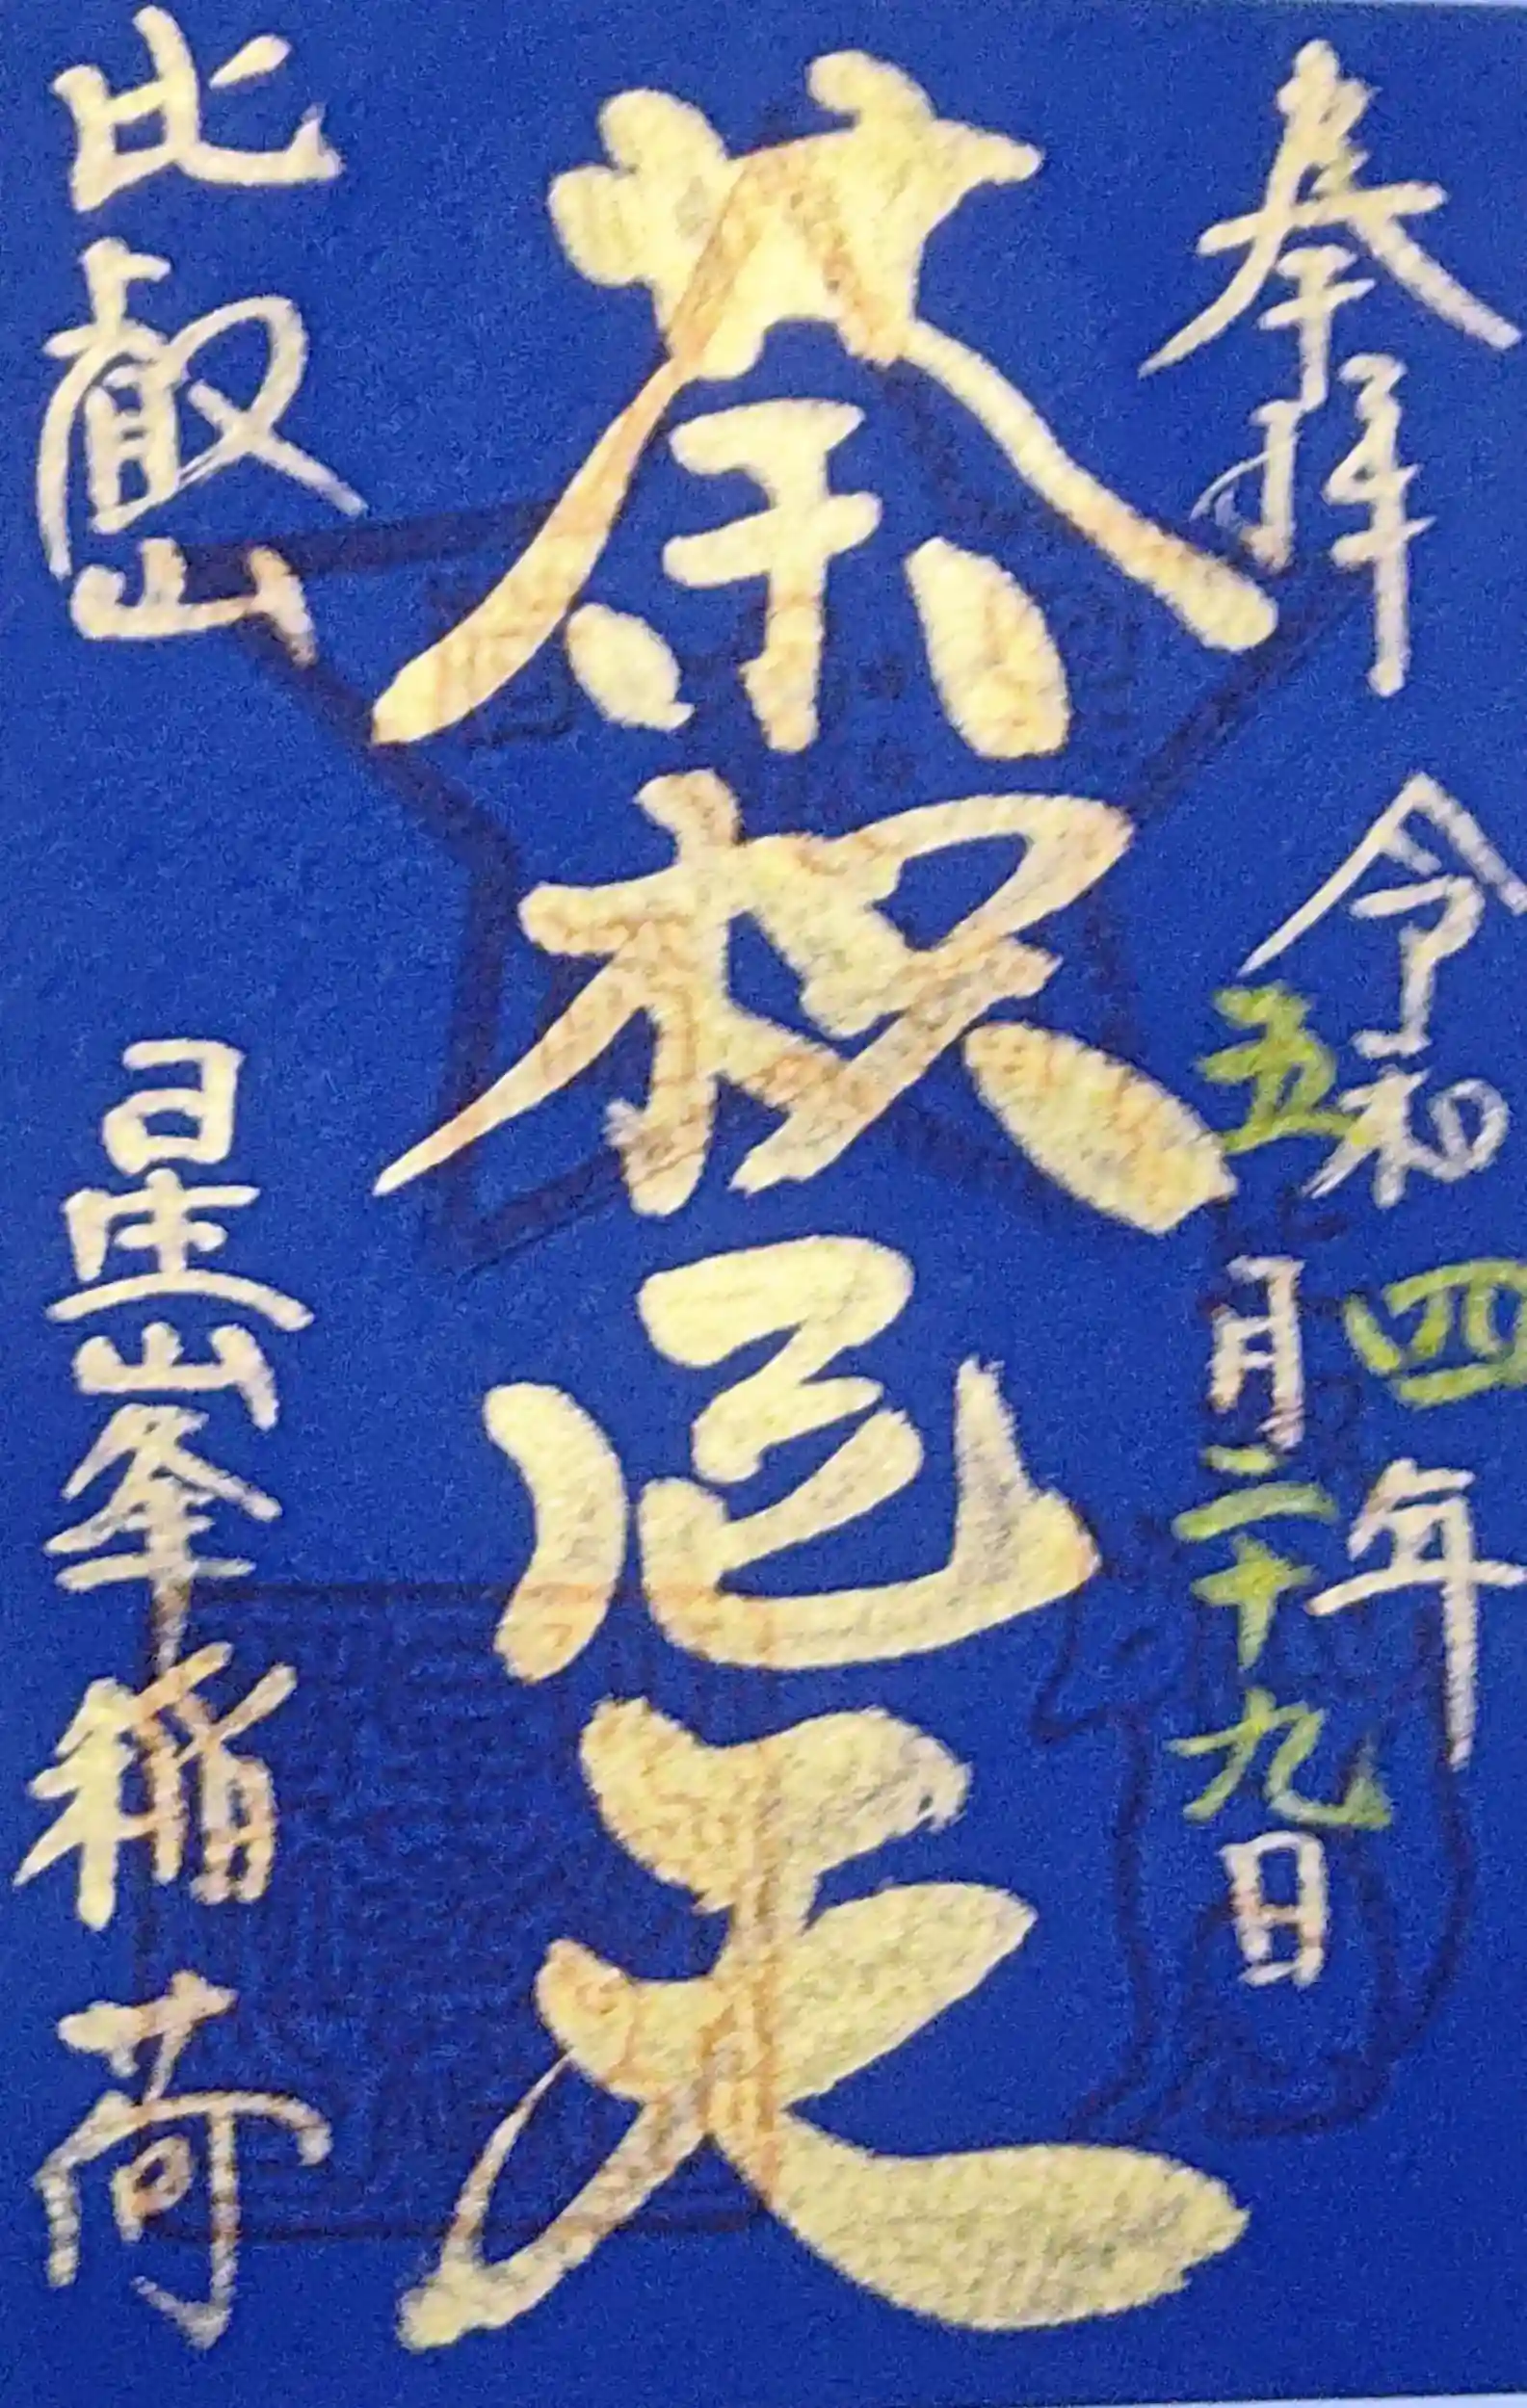 奉拝
令和四年
五月二十九日
荼枳尼天
比叡山 星峯稲荷